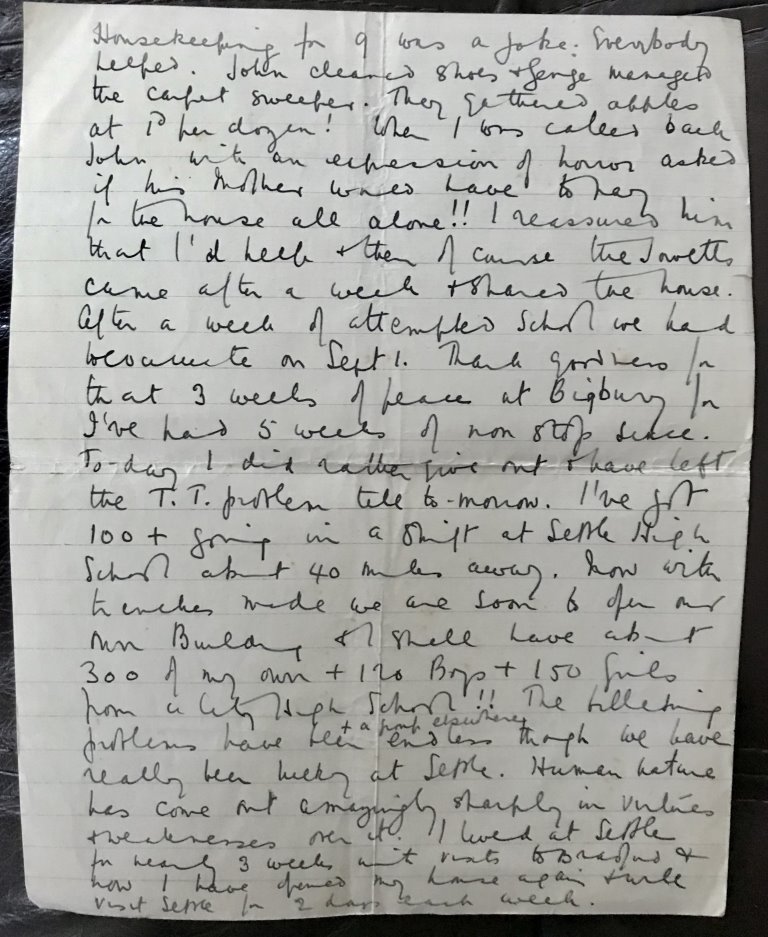 Housekeeping for 9 was a joke. Everybody
helped. John cleaned shoes & George managed
the carpet sweeper. They gathered apples
at 1D per dozen! When I was called back
John with an expression of horror asked
if his Mother would have to pay
for the house all alone!! I reassured him
that I'd help & then of course the Jowetts
came after a week & shared the house.
After a week of attempted School we had
to evacuate on Sept 1. Thank goodness for
that 3 weeks of peace at Bigbury for
I've had 5 weeks of non stop since.
To-day I did rather give out & have left
the T.T. problem till to-morrow. I've got
100+ going in a shift at Settle High
School about 40 miles away. Now with
trenches made we are soon to open our
own Building & I shall have about
300 of my own + 120 Boys + 150 Girls
from a City High School!! The billeting
+ a group elsewhere
problems have been endless though we have
really been lucky at Settle. Human nature
has come out amazingly sharply in virtues
& weaknesses over it. I lived at Settle
for nearly 3 weeks with visits to Bradford &
now I have opened my house again & will
visit Settle for 2 days each week.